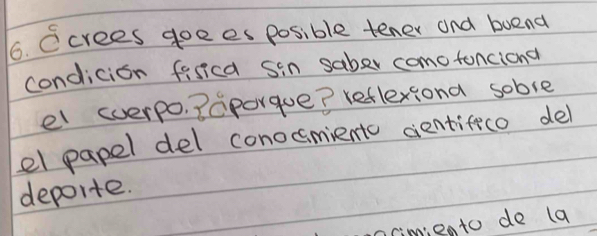 6. ¿crees que es posible tener una buena
condición física sin saber como funciona
el cuerpo.? ¿porque? reflexiona sobre
el papel del conocimiento científico del
deporte.
de la